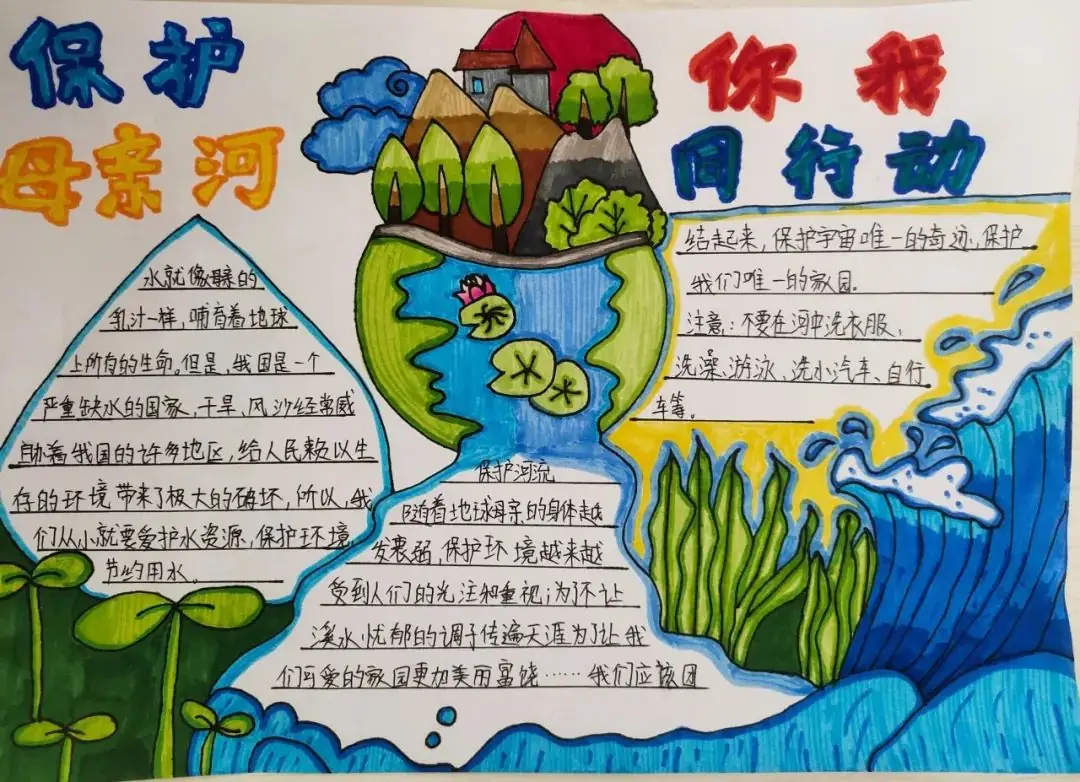 保护
母亲河
你我
同行动
水就像母亲的
乳汁一样,哺育着地球
上所有的生命。但是,我国是一个
严重缺水的国家、干旱、风沙经常威
胁着我国的许多地区,给人民赖以生
存的环境带来了极大的破坏,所以,我
们从小就要爱护水资源,保护环境
节约用水。
保护河流
随着地球母亲的身体越
发衰弱,保护环境越来越
受到人们的光注和重视;为了不让
溪水忧郁的调子传遍天涯为了让我
们可爱的家园更加美丽富饶……我们应该团
结起来,保护宇宙唯一的奇迹,保护
我们唯一的家园。
注意:不要在河中洗衣服、
洗澡、游泳、洗小汽车、自行
车等。